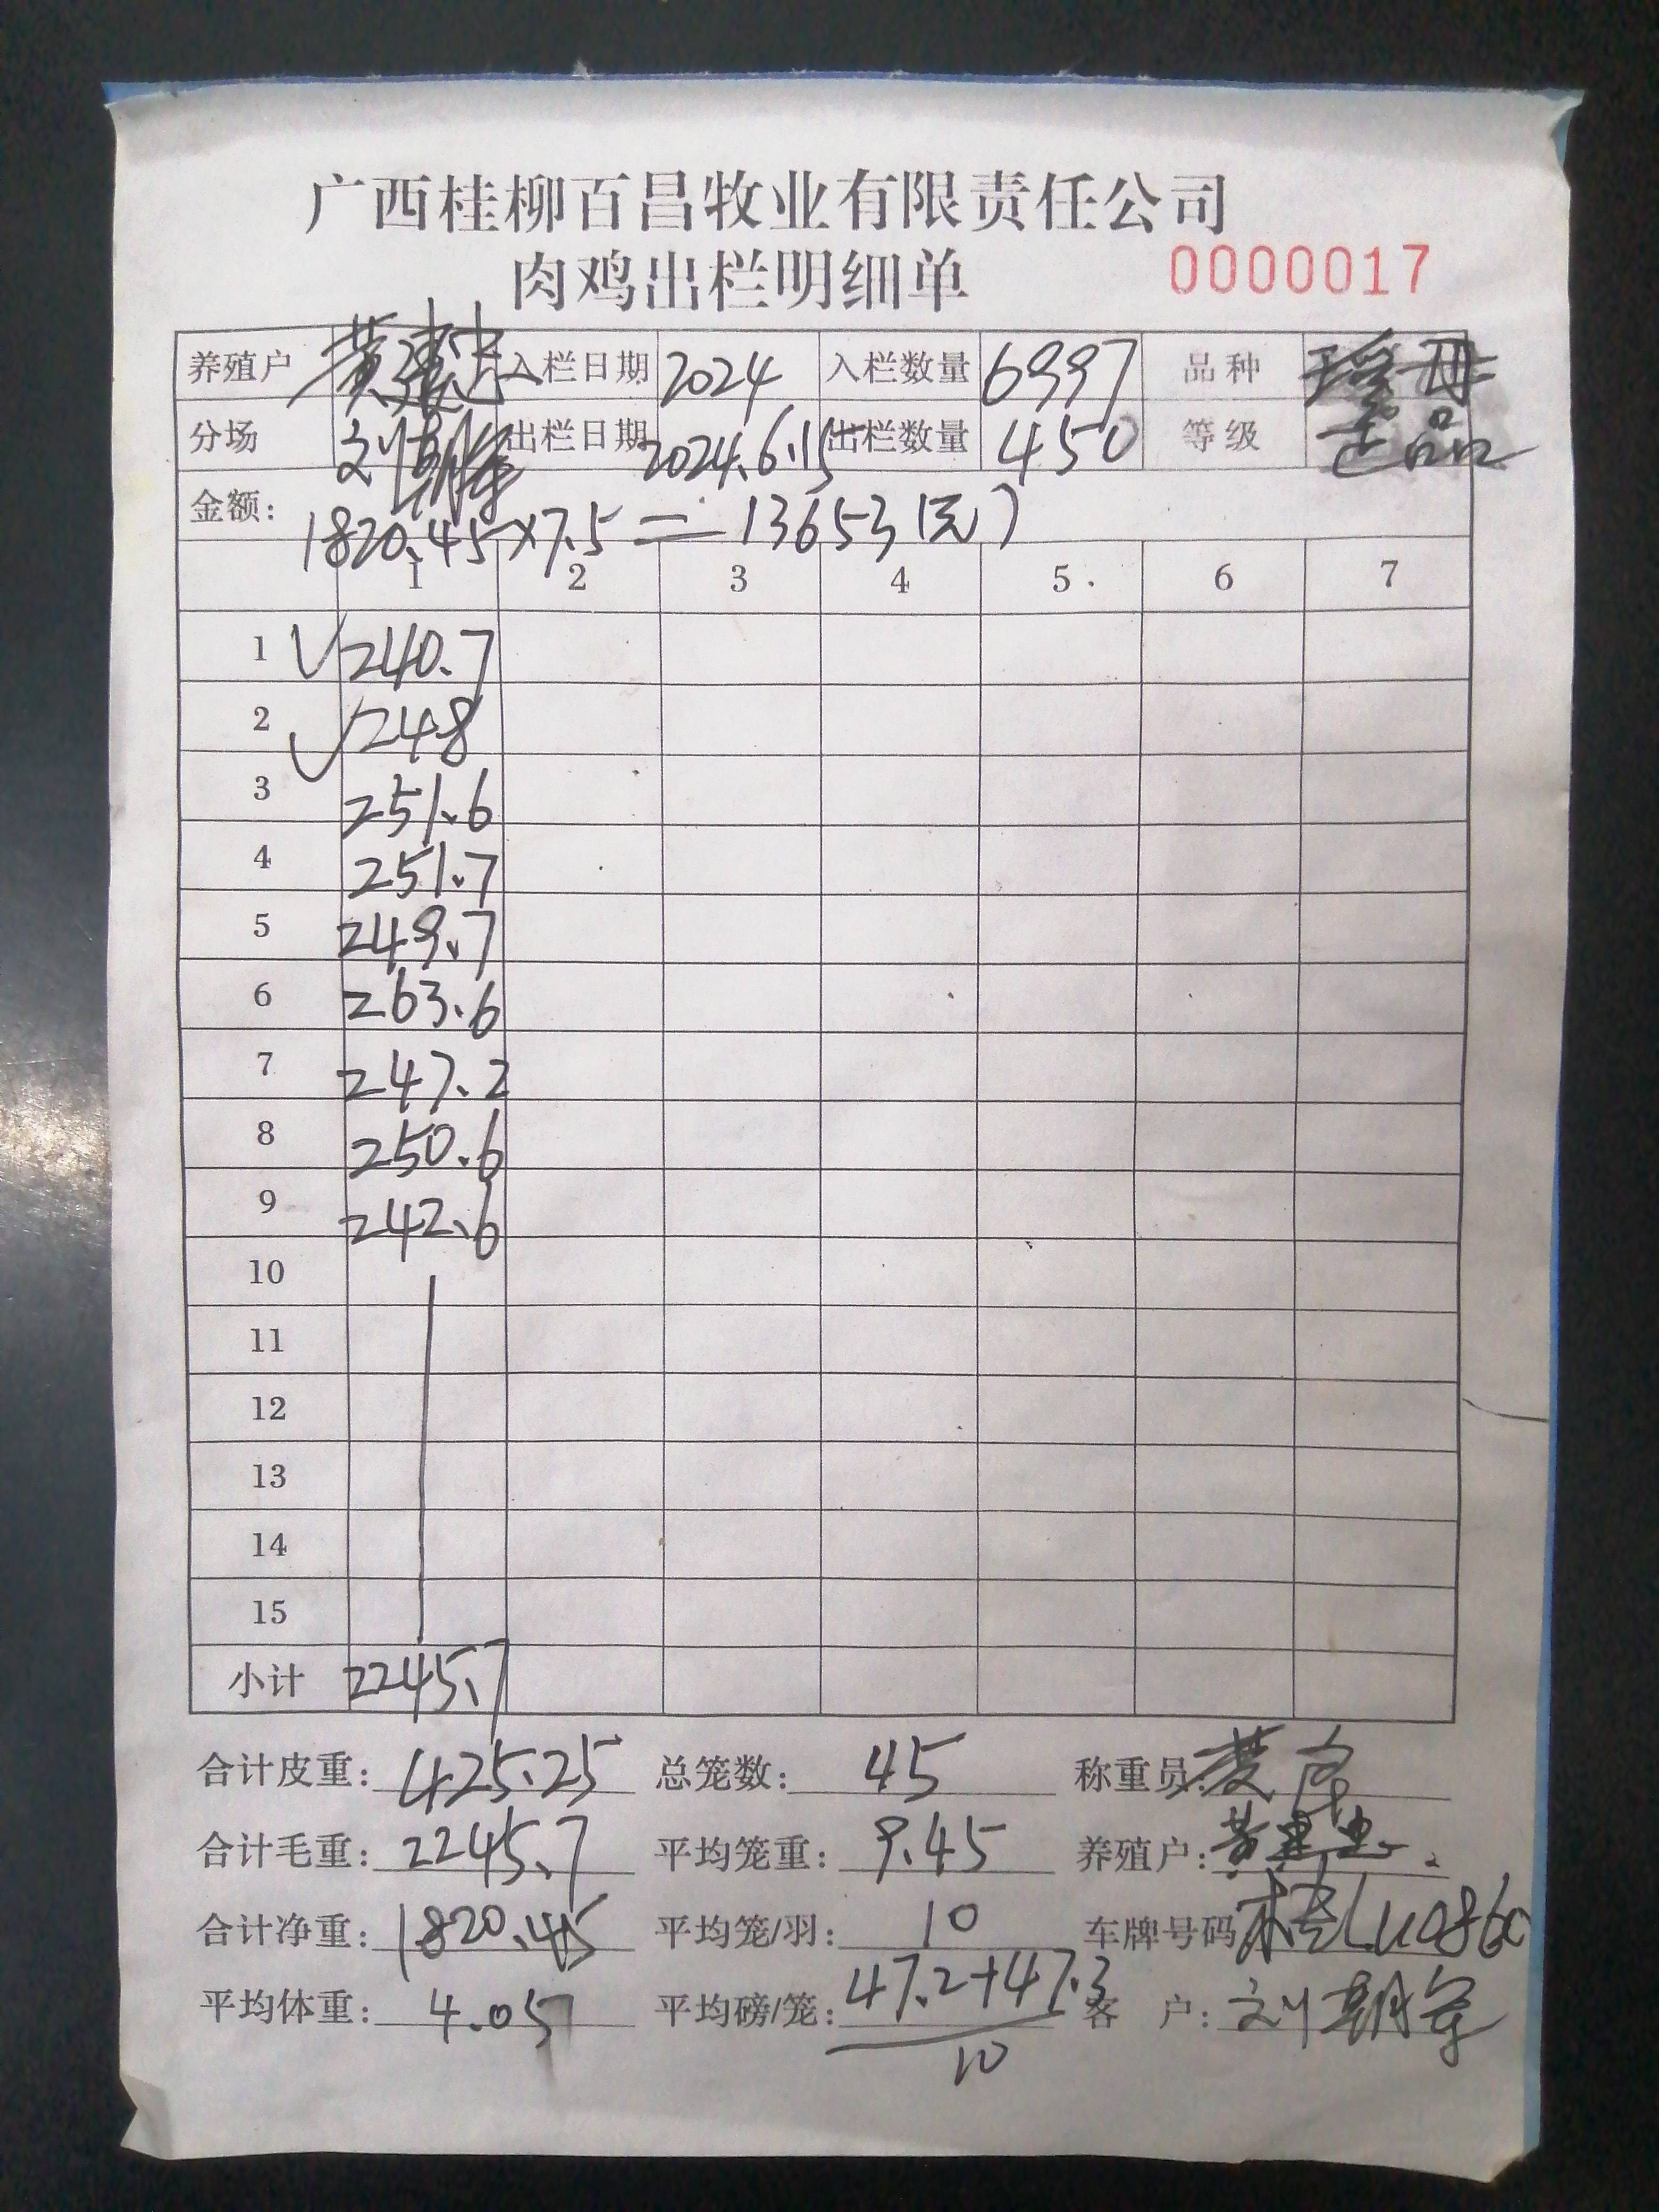 广西桂柳百昌牧业有限责任公司
肉鸡出栏明细单 0000017
养殖户 入栏日期 2024 入栏数量 6997 品种
分场 刘朝 出栏日期 2024.6.15 出栏数量 450 等级 选品
金额: 1820.45×7.5=13653(元)
1 2 3 4 5 6 7
1 240.7
2 248
3 251.6
4 251.7
5 249.7
6 263.6
7 247.2
8 250.6
9 242.6
10
11
12
13
14
15
小计 2245.7
合计皮重: 425.25 总笼数: 45 称重员:
合计毛重: 2245.7 平均笼重: 9.45 养殖户: 黄建忠
合计净重: 1820.45 平均笼/羽: 10 车牌号码
平均体重: 4.05 平均磅/笼: 47.2+47.3 客 户: 刘朝
10